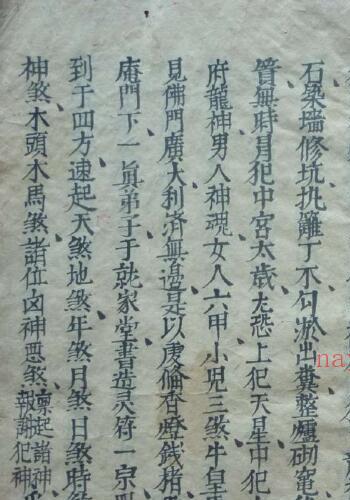 石築墻修坑扎籬丁不勻淤出糞整爐砌竈
管無時月犯中宮太歲尤恐上犯天星中犯
府龍神男人神魂女人六甲小兒三煞牛皇
見佛門廣大利济無邊是以虔俻香燈錢猪
庵門下一眞弟子于就家堂書遣灵符一宗
到于四方速起天煞地煞年煞月煞日煞時
神煞木頭木馬煞諸位凶神悪煞
稟起諸神
報謝犯神
na